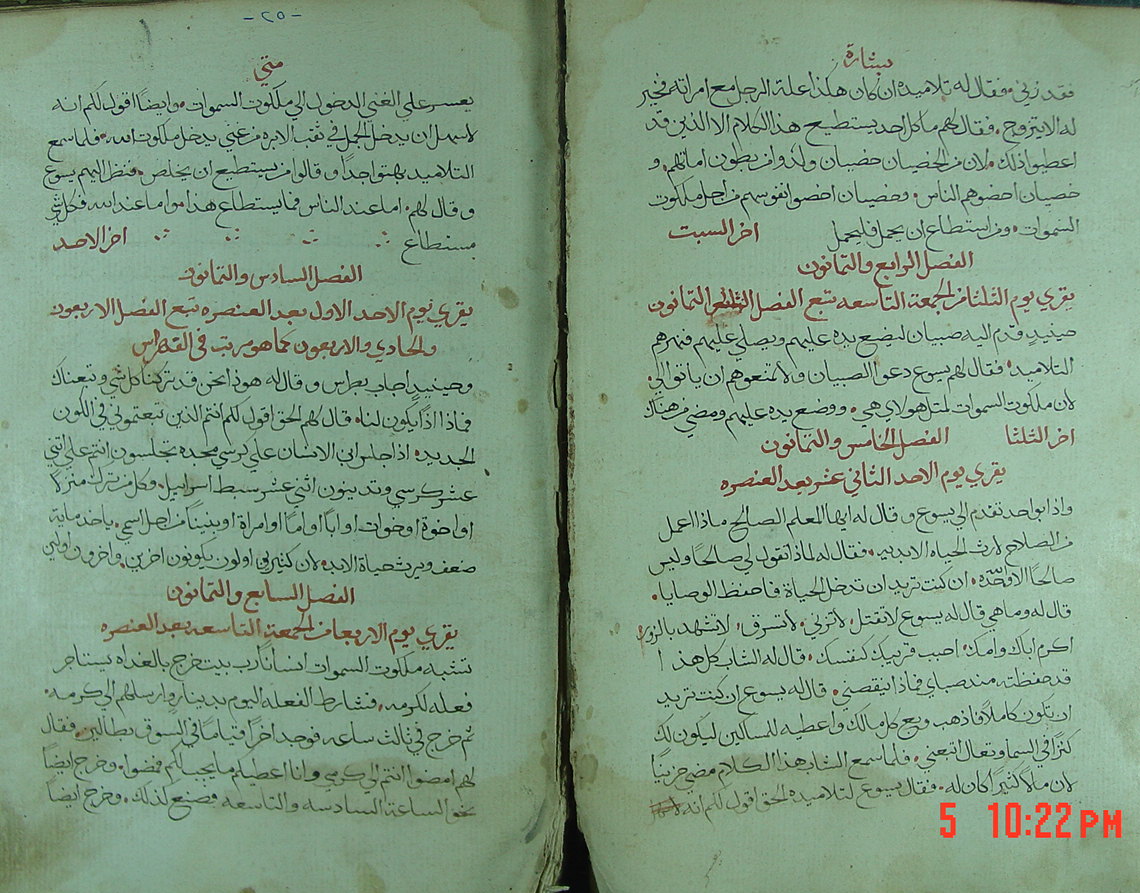 بشارة
فقد زنى. فقال له تلاميذه ان كان هكذا علة الرجل مع امراته فخير
له الا يتزوج. فقال لهم ما كل احد يستطيع هذا الكلام الا الذين قد
اعطيوا ذلك. لان من الخصيان خصيان ولدوا من بطون امهاتهم. و
خصيان اخصوهم الناس. وخصيان اخصوا نفوسهم من اجل ملكوت
السموات. ومن استطاع ان يحمل فليحمل اخر السبت
الفصل الرابع والثمانون
يقري يوم الثلثا من الجمعة التاسعه تبع الفصل والثمانون
حينيذ قدم اليه صبيان ليضع يده عليهم ويصلي عليهم فنهرهم
التلاميذ. فقال لهم يسوع دعوا الصبيان ولا تمنعوهم ان ياتوا الي.
لان ملكوت السموات لمثل هولاي هي. ووضع يده عليهم ومضى من هناك
اخر الثلثا الفصل الخامس والثمانون
يقري يوم الاحد الثاني عشر بعد العنصره
واذا بواحد تقدم الي يسوع وقال له ايها المعلم الصالح ماذا اعمل
من الصلاح لارث الحياه الابديه. فقال له لماذا تقول لي صالحا وليس
صالحا الا الله وحده. ان كنت تريد ان تدخل الحياة فاحفظ الوصايا.
قال له وما هي قال له يسوع لا تقتل. لا تزني. لا تسرق. لا تشهد بالزور
اكرم اباك وامك. احبب قريبك كنفسك. قال له الشاب كل هذا
قد حفظته منذ صباي فماذا ينقصني. قال له يسوع ان كنت تريد
ان تكون كاملا فاذهب وبع كل مالك واعطيه للمساكين ليكون لك
كنزا في السما وتعال اتبعني. فلما سمع الشاب هذا الكلام مضى حزينا
لان مالا كثيرا كان له. فقال يسوع لتلاميذه الحق اقول لكم انه
5 10:22 PM
-٢٥-
متي
يعسر على الغني الدخول الي ملكوت السموات. وايضا اقول لكم انه
لاسهل ان يدخل الجمل في ثقب الابره من غني يدخل ملكوت الله. فلما سمع
التلاميد بهتوا جدا وقالوا من يستطيع ان يخلص. فنظر اليهم يسوع
وقال لهم. اما عند الناس فما يستطاع هذا. واما عند الله فكل شي
يستطاع اخر الاحد
الفصل السادس والثمانون
يقري يوم الاحد الاول بعد العنصره تبع الفصل الاربعون
والحادي والاربعون كما هو مرتب في الفهراس
وحينيذ اجاب بطرس وقال له هوذا نحن قد تركنا كل شي وتبعناك
فماذا اذا يكون لنا. قال لهم الحق اقول لكم انتم الذين تبعتموني في الكون
الجديد. اذا جلس ابن الانسان علي كرسي مجده تجلسون انتم علي اثني
عشر كرسي وتدينون اثني عشر سبط اسراييل. وكل من ترك منزلا
او اخوة او خوات او ابا او اما او امراة او بنينا من اجل اسمي. ياخذ ماية
ضعف ويرث حياة الابد. لان كثيرين اولون يكونون اخرين. واخرون اولين
الفصل السابع والثمانون
يقري يوم الاربعا من الجمعة التاسعه بعد العنصره
تشبه ملكوت السموات انسانا رب بيت خرج بالغداه يستاجر
فعله لكرمه. فشارط الفعله اليوم بدينار وارسلهم الي كرمه.
ثم خرج في ثالث ساعه فوجد اخرا قياما في السوق بطالين. فقال
لهم امضوا انتم الي كرمي وانا اعطيكم ما يجب لكم فمضوا. وخرج ايضا
نحو الساعة السادسه والتاسعه فصنع لذلك. وخرج ايضا